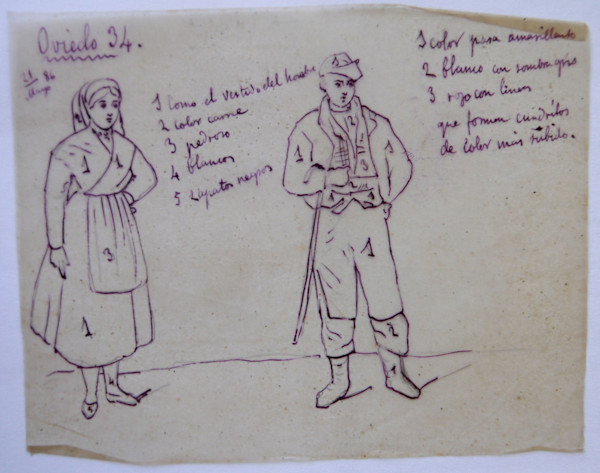 Oviedo 34.
21 86
Mayo
1 Como el vestido del hombre
2 color carne
3 pedroso
4 blancos
5 zapatos negros
1 color pasa amarillento
2 blanco con sombra gris
3 rojo con lineas
que forman cuadritos
de color más subido.